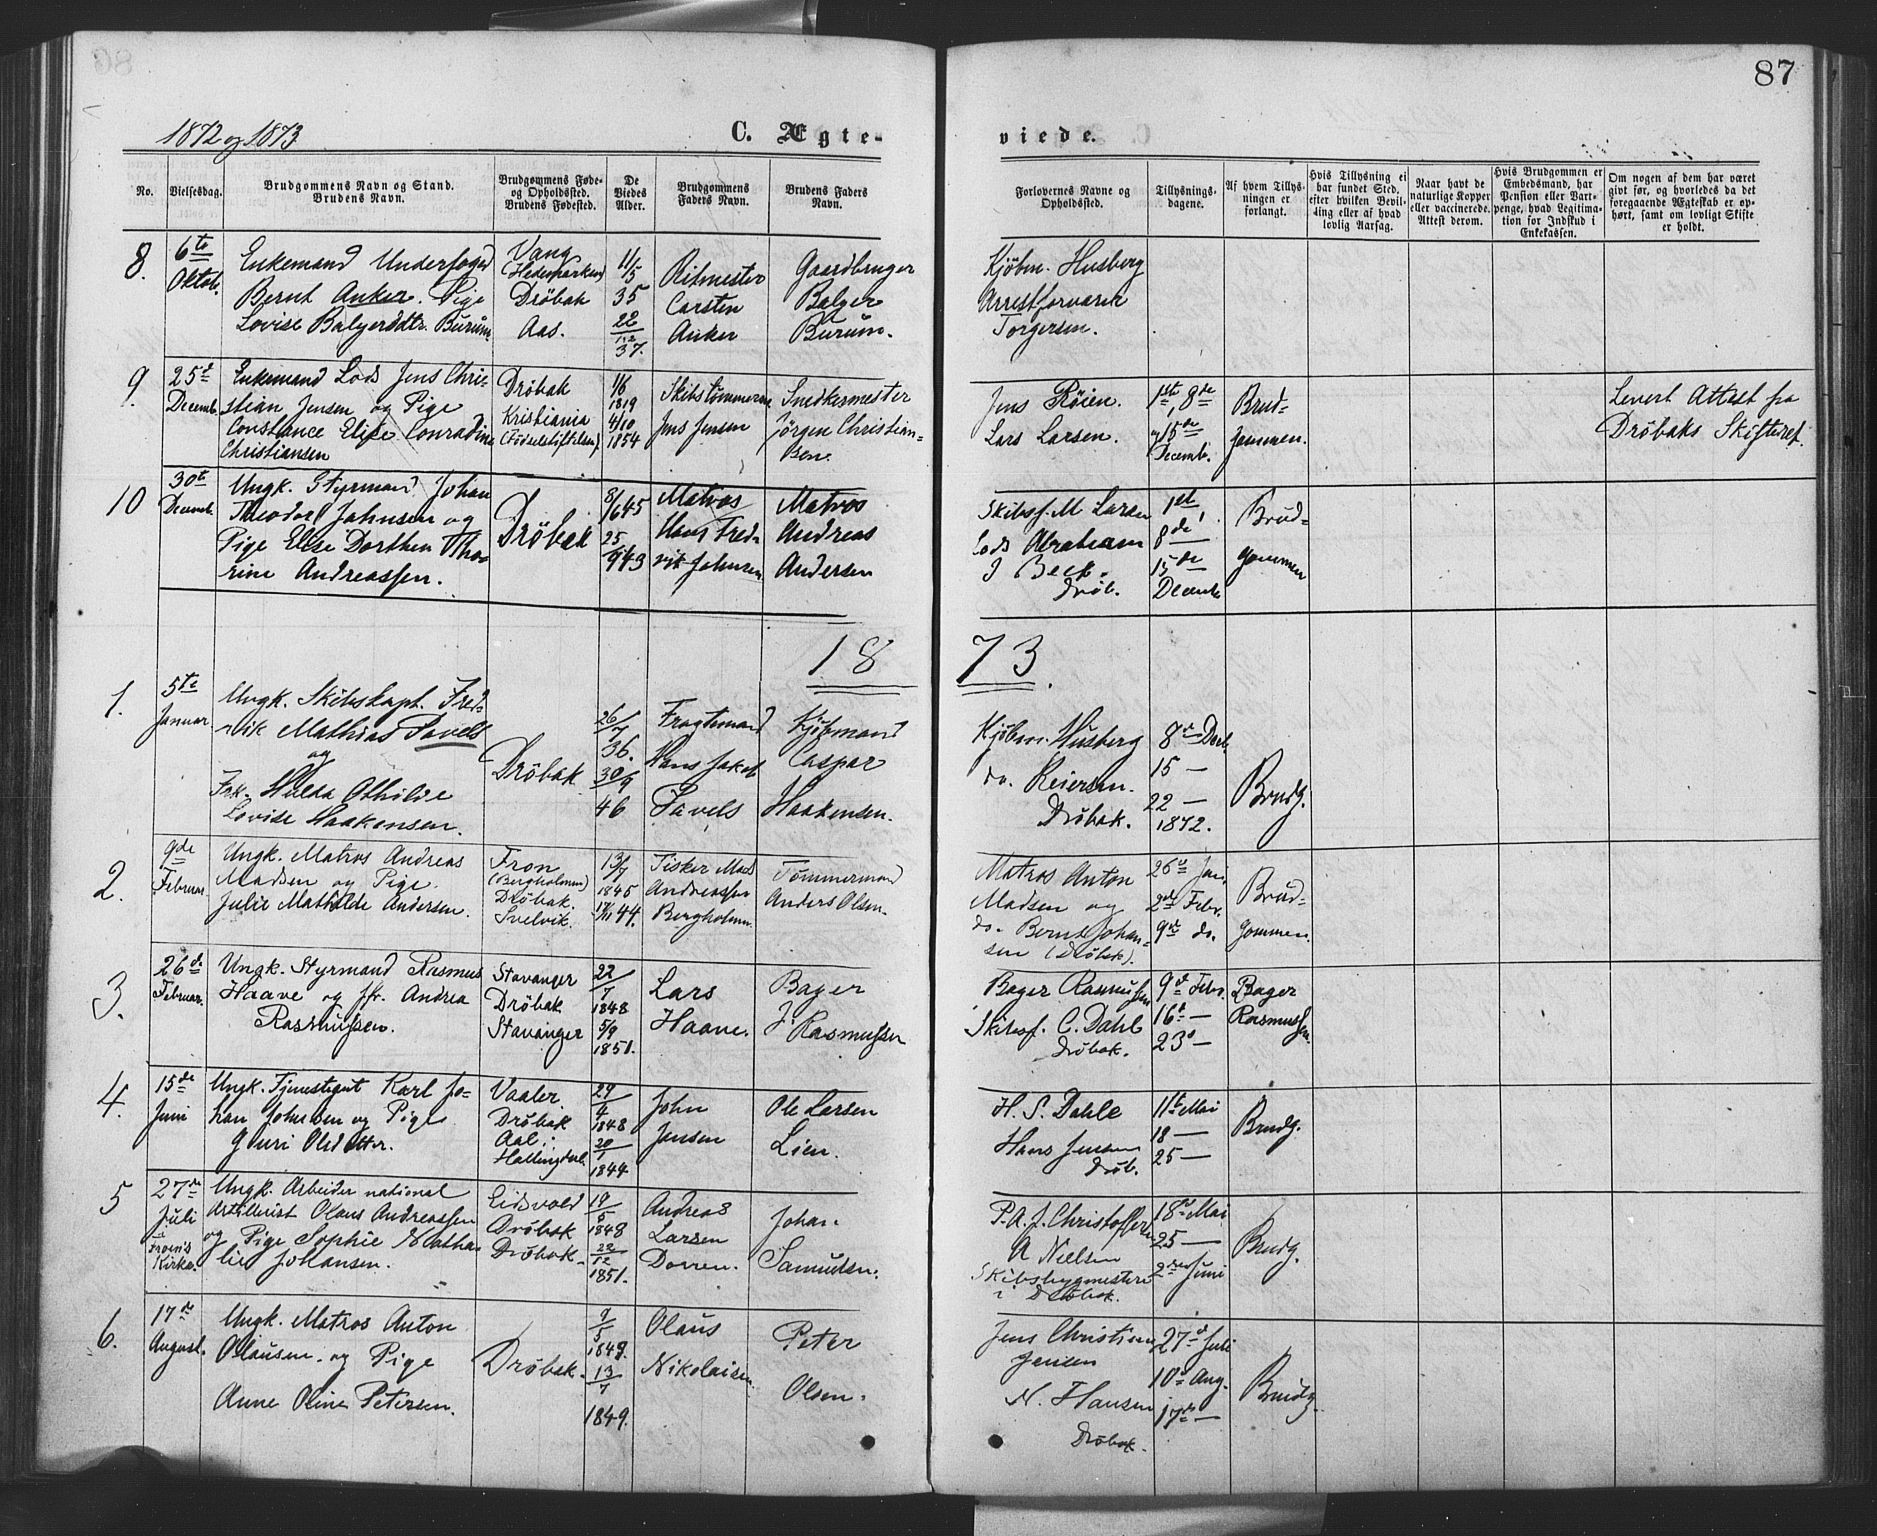 87
1872 og 1873
C. Ægte-
viede.
No.
Vielsesdag.
Brudgommens Navn og Stand.
Brudens Navn.
Brudgommens Føde-
og Opholdssted.
Brudens Fødested.
De
Viedes
Alder.
Brudgommens
Faders Navn.
Brudens Faders
Navn.
Forlovernes Navne og
Opholdssted.
Tillysnings-
dagene.
Af hvem Tillys-
ningen er
forlangt.
Hvis Tillysning ei
har fundet Sted,
efter hvilken Bevil-
ling eller af hvad
lovlig Aarsag.
Naar havt de
naturlige Kopper
eller vaccinerede.
Attest derom.
Hvis Brudgommen er
Embedsmand, har
Pension eller Vart-
penge, hvad Legitima-
tion for Indskud i
Enkekassen.
Om nogen af dem har været
givt før, og hvorledes da det
foregaaende Ægteskab er op-
hørt, samt om lovligt Skifte
er holdt.
8.
6te
Oktob.
Enkemand Underfoged
Bernt Anker. Pige
Lovise Balgersdtr. Burum.
Vang
(Hedemarken)
Dröbak
Aas.
11/5
35
22
37.
Ritmester
Carsten
Anker
Gaardbruger
Balger
Burum.
Kjöbm. Husberg
Arrestforvarer
Torgersen.
9.
25d
Decemb.
Enkemand Lods Jens Chri-
stian Jensen og Pige
Constance Elise Conradine
Christiansen
Dröbak
Kristiania
(Födselsstiftelsen).
1/6
1819
4/10
1854
Skibstømmerm.
Jens Jensen
Snedkermester
Jörgen Christian-
sen.
Jens Röien.
Lars Larsen.
1ste, 8de
og 15de
Decemb.
Brud-
gommen.
Levert Attest fra
Dröbaks Skifteret.
10
30te
Decemb.
Ungk. Styrmand Johan
Theodor Johnsen og
Pige Elise Dorthea Tho-
rine Andreassen.
Dröbak
8/6 45
25
/9 43
Matros
Hans Fred-
rik Johnsen
Matros
Andreas
Andersen
Skibsf. M Larsen
Lods Abraham
J Beck.
Dröb.
1st
8de
15de
Decemb.
Brud-
gommen
1873.
1.
5te
Januar.
Ungk. Skibskapt. Fred-
rik Mathias Pavels
og
Frk. Hulda Othilie
Lovise Haakensen.
Dröbak.
26/7
36.
30/9
46
Fragtemand
Hans Jakob
Pavels
Kjöbmand
Caspar
Haakensen.
Kjöbm. Husberg
do. Reiersen.
Dröbak.
8de Decb.
15 —
22 —
1872.
Brudg.
2.
9de
Februar.
Ungk. Matros Andreas
Madsen og Pige.
Julie Mathilde Andersen.
Fron
(Bergholmen)
Dröbak.
Svelvik.
13/7
1845
/11 44.
Fisker Mads
Andreassen
Bergholmen.
Tömmermand
Anders Olsen.
Matros Anton
Madsen og
do. Bernt Johan-
sen (Dröbak).
26de Jan.
2den Febr.
9de do.
Brud-
gommen.
3.
26de
Februar.
Ungk. Styrmand Rasmus
Haave og Jfr. Andrea
Rasmussen.
Stavanger
Dröbak
Stavanger
22/7
1848
5/9
1851.
Lars
Haave.
Bager
J. Rasmussen
Bager Rasmussen
Skibsf. C. Dahl
Dröbak.
9d Febr.
16d —
23d —
Bager
Rasmussen.
4.
15de
Juni
Ungk. Tjenestegut Karl Jo-
han Johnsen og Pige
Guri Olsdatter.
Vaaler.
Dröbak
Aal i
Hallingdal.
29/4
1848
20/1
1844
John
Jensen
Ole Larsen
Lien.
H. S. Dahle
Hans Jensen
Dröb.
11te Mai
18 —
25 —
Brudg.
5
27de
Juli
i Froens
Kirke.
Ungk. Arbeider national
Artillerist Olaus Andreassen
og Pige Sophie Natha-
lie Johansen.
Eidsvold
Dröbak
Dröbak.
19/5
1848
22/12
1851.
Andreas
Larsen
Dorren.
Johan.
Samuelsen.
P. A. J. Christoffersen
A Nielsen
Skibsbygmestere
i Dröbak.
18de Mai
25 —
2den Juni
Brudg.
6.
17de
August.
Ungk. Matros Anton
Olausen. og Pige
Anne Oline Petersen.
Dröbak.
9/5
1849.
13/7
1849.
Olaus
Nikolaisen.
Peter
Olsen.
Jens Christian
Jensen
N. Hansen
Dröbak.
27de Juli
10de Aug.
17de —
Brudg.